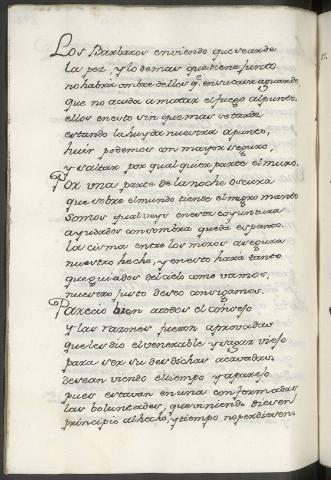 Los Barbaros en viendo que se arde
la pez, y lo demas que tiene junto
no habra ombre dellos q̃ en su casa aguarde,
que no acuda a matar el fuego al punto.
ellos en esto sin que mas se tarde
estando la huyda nuestra a punto,
huir podemos con mayor seguro,
y saltar por qual quier parte el muro.
Por una parte de la noche oscura
que sobre el mundo tiende el negro manto
somos qual veys en esta coyuntura
ayudados con sombra que da espanto.
la cisma entre los moros asegura
nuestro hecho, y en esto hará tanto
que guiados del cielo como vamos,
nuestro justo deseo consigamos.
Parecio bien a todos el consejo
y las razones fueron aprovadas
que les dio el venerable y sagaz viejo
para ser su desdichas acavadas.
desean viendo el tiempo y aparejo
pues estavan en una conformadas
las boluntades, que viniendo diesen
principio al hecho, y tiempo no perdiesen.